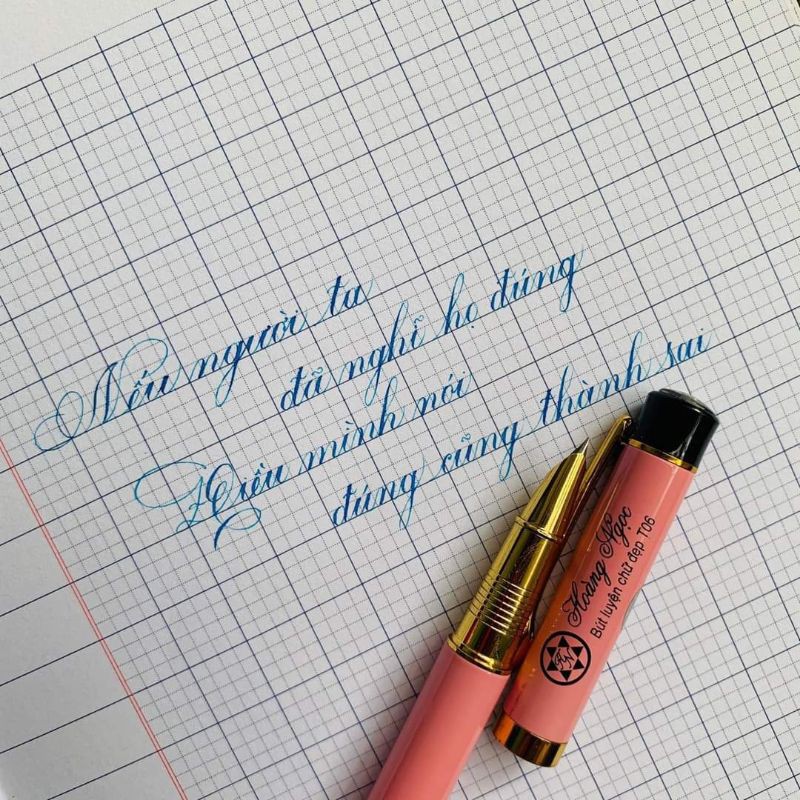 Nếu người ta
đã nghĩ họ đúng
Điều mình nói
đúng cũng thành sai
Hoàng Ngọc
Bút luyện chữ đẹp T06